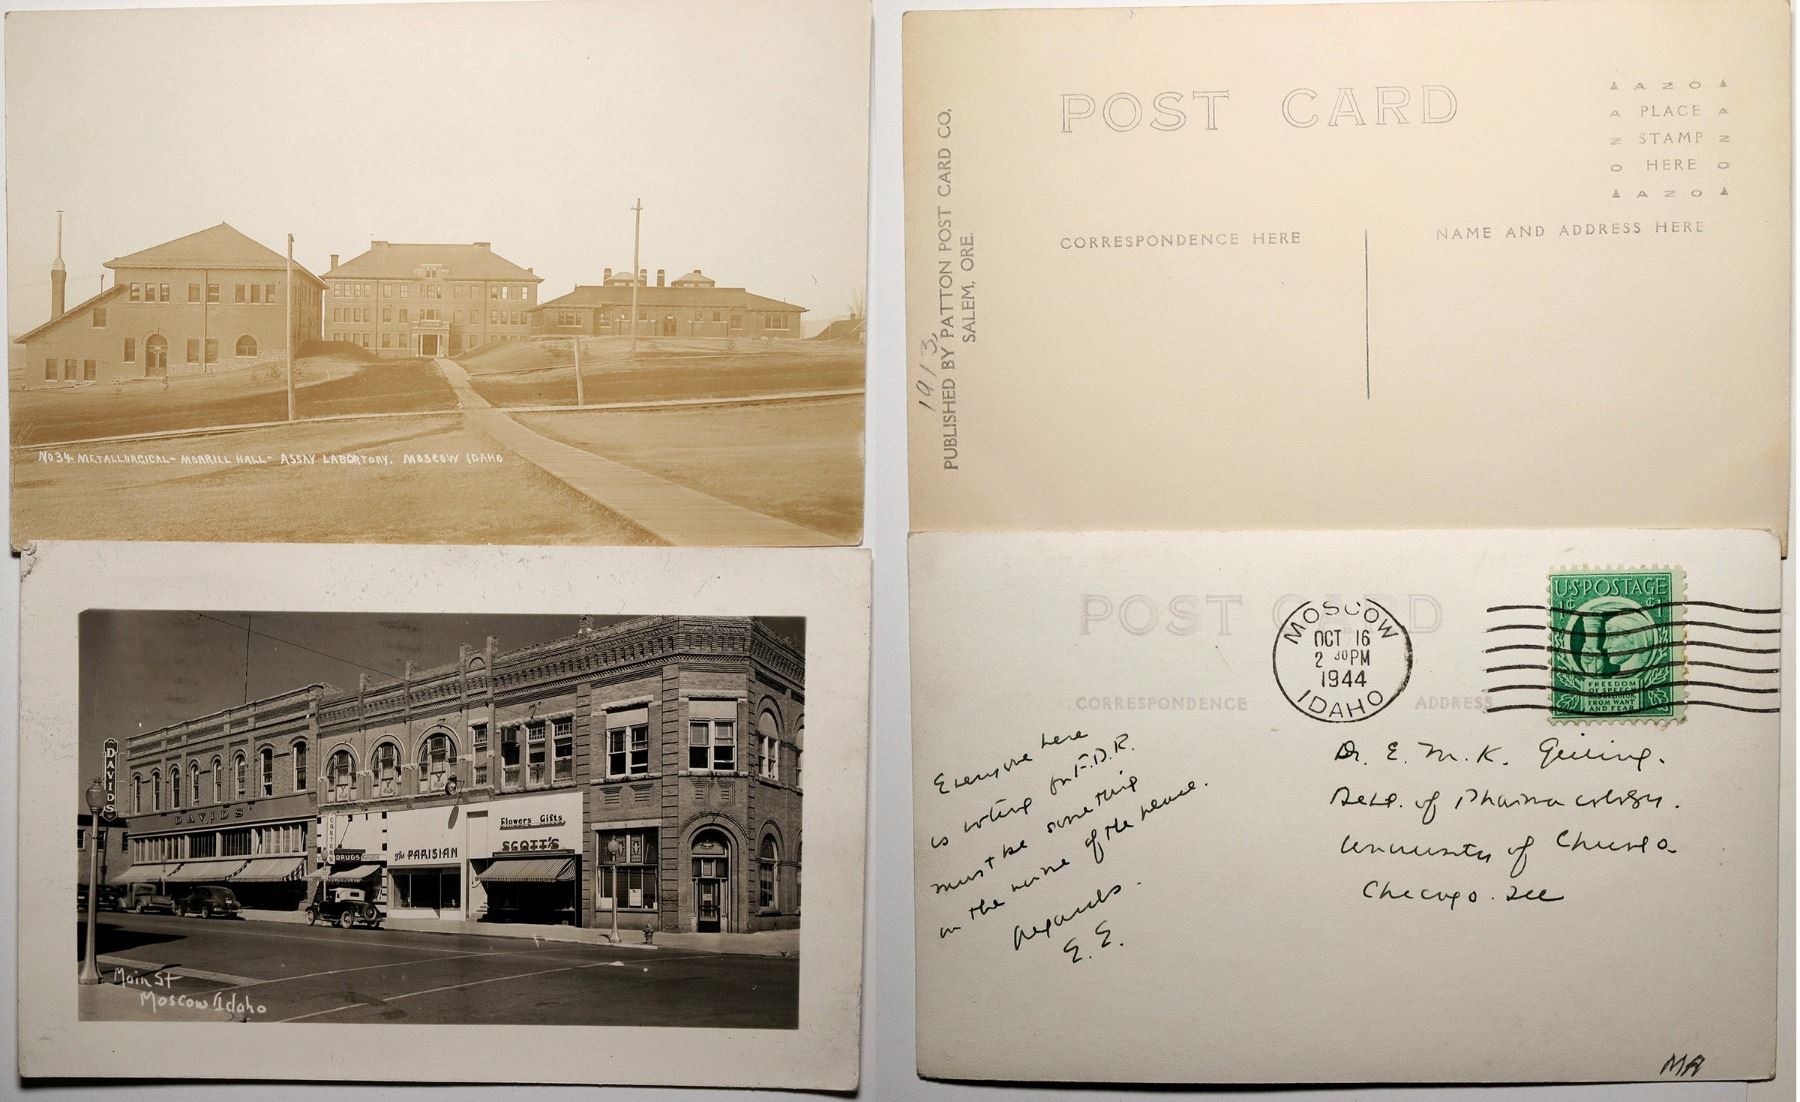 No 34. METALLURGICAL - MORRILL HALL - ASSAY LABORTORY. MOSCOW IDAHO
POST CARD
AZO
PLACE
STAMP
HERE
AZO
CORRESPONDENCE HERE
NAME AND ADDRESS HERE
1913
PUBLISHED BY PATTON POST CARD CO.
SALEM, ORE.
DAVIDS
DAVIDS'
DRUGS
The PARISIAN
Flowers Gifts
SCOTT'S
Main St
Moscow Idaho
POST CARD
CORRESPONDENCE
ADDRESS
MOSCOW
OCT 16
2 30 PM
1944
IDAHO
U.S. POSTAGE
1¢ ¢1
FREEDOM
OF SPEECH
FROM WANT
AND FEAR
Everyone here
is voting for F.D.R.
must be something
in the name of the peace.
Regards.
E. E.
Dr. E. M. K. Geiling.
Dept. of Pharmacology.
University of Chicago
Chicago. Ill
MA